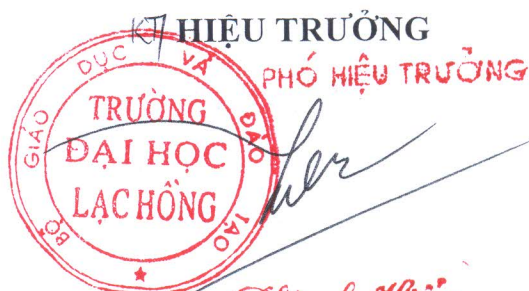 KT HIỆU TRƯỞNG
PHÓ HIỆU TRƯỞNG
BỘ GIÁO DỤC VÀ ĐÀO TẠO
TRƯỜNG
ĐẠI HỌC
LẠC HỒNG